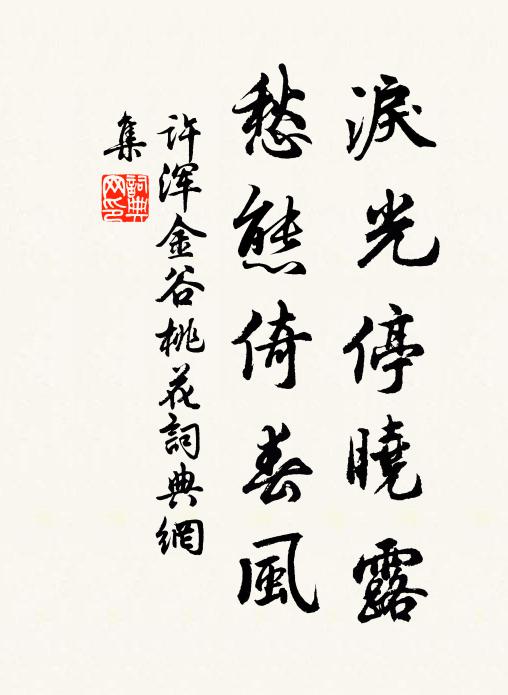 淚光停曉露
愁態倚春風
许浑金谷桃花詞典網
集
詞典
网印